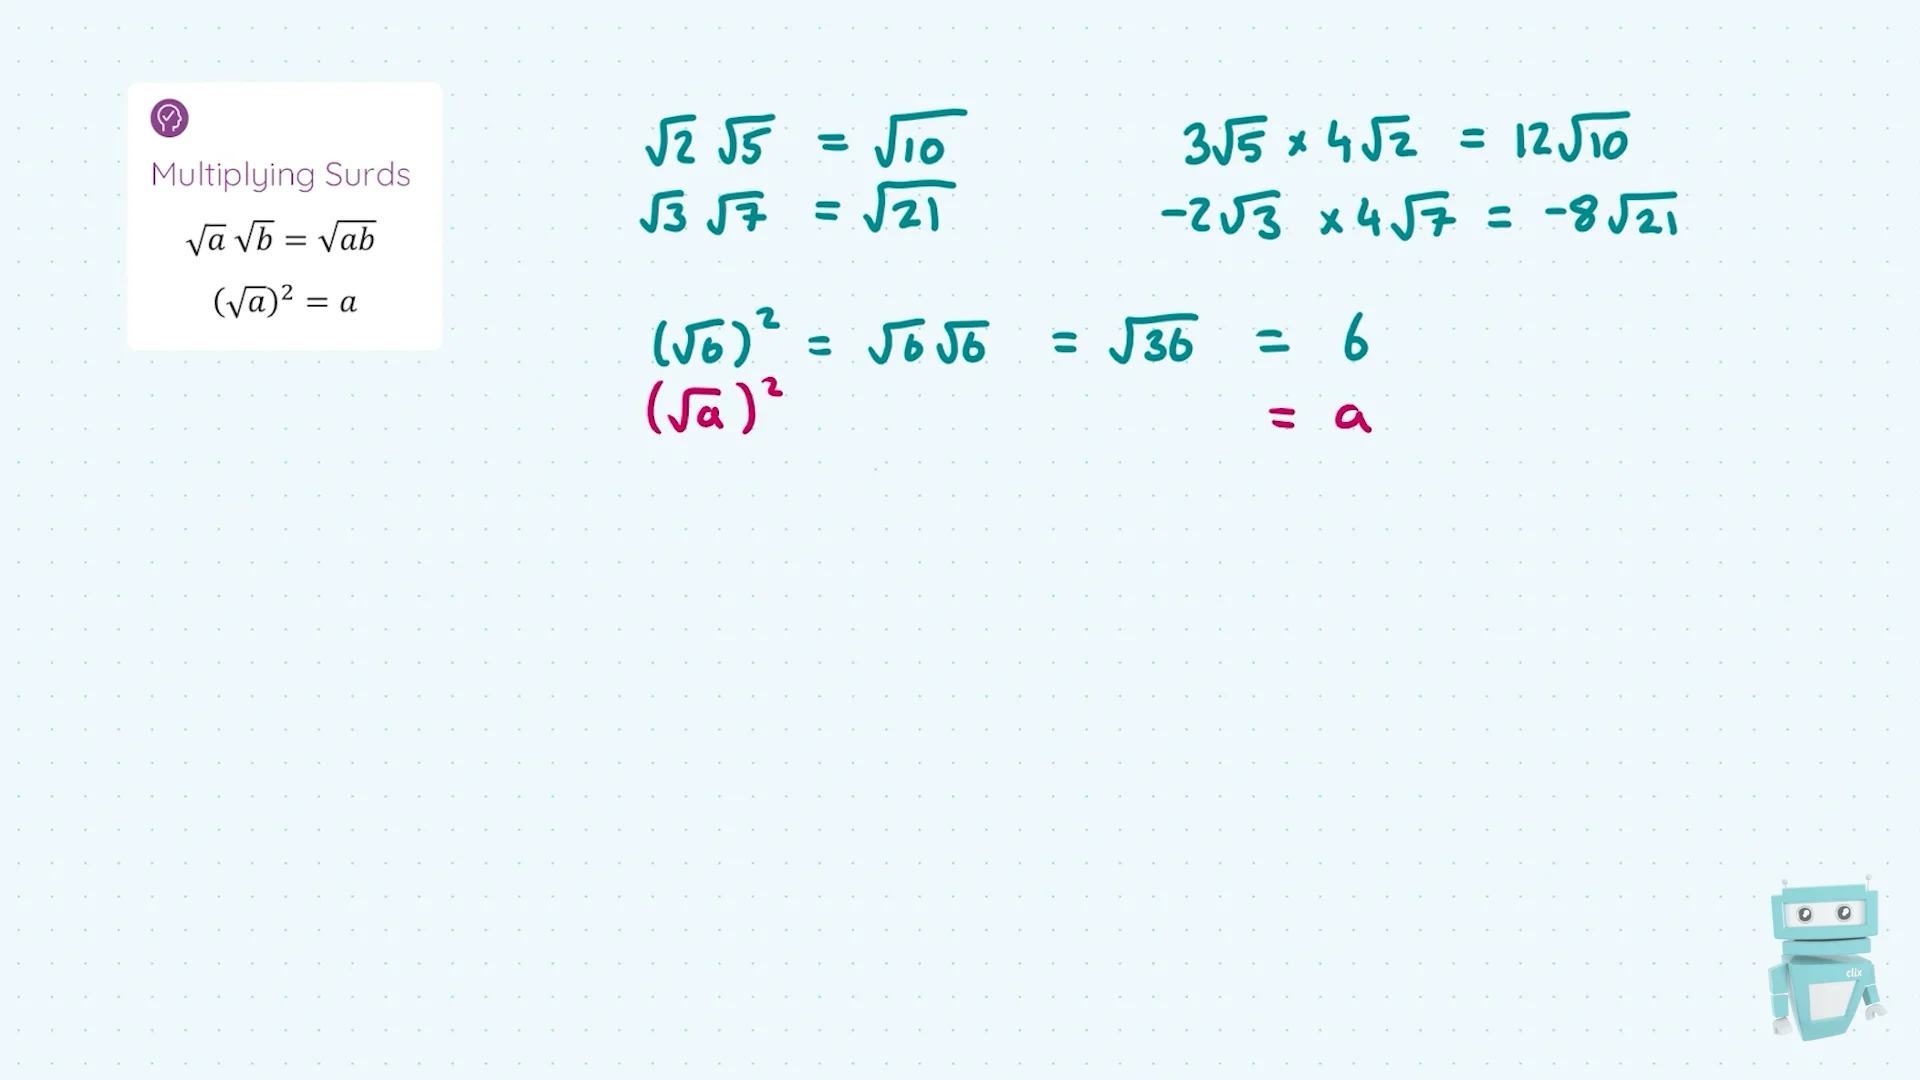 Multiplying Surds
√a √b = √ab
(√a)² = a
√2 √5 = √10
√3 √7 = √21
3√5 × 4√2 = 12√10
-2√3 × 4√7 = -8√21
(√6)² = √6 √6 = √36 = 6
(√a)² = a
clix